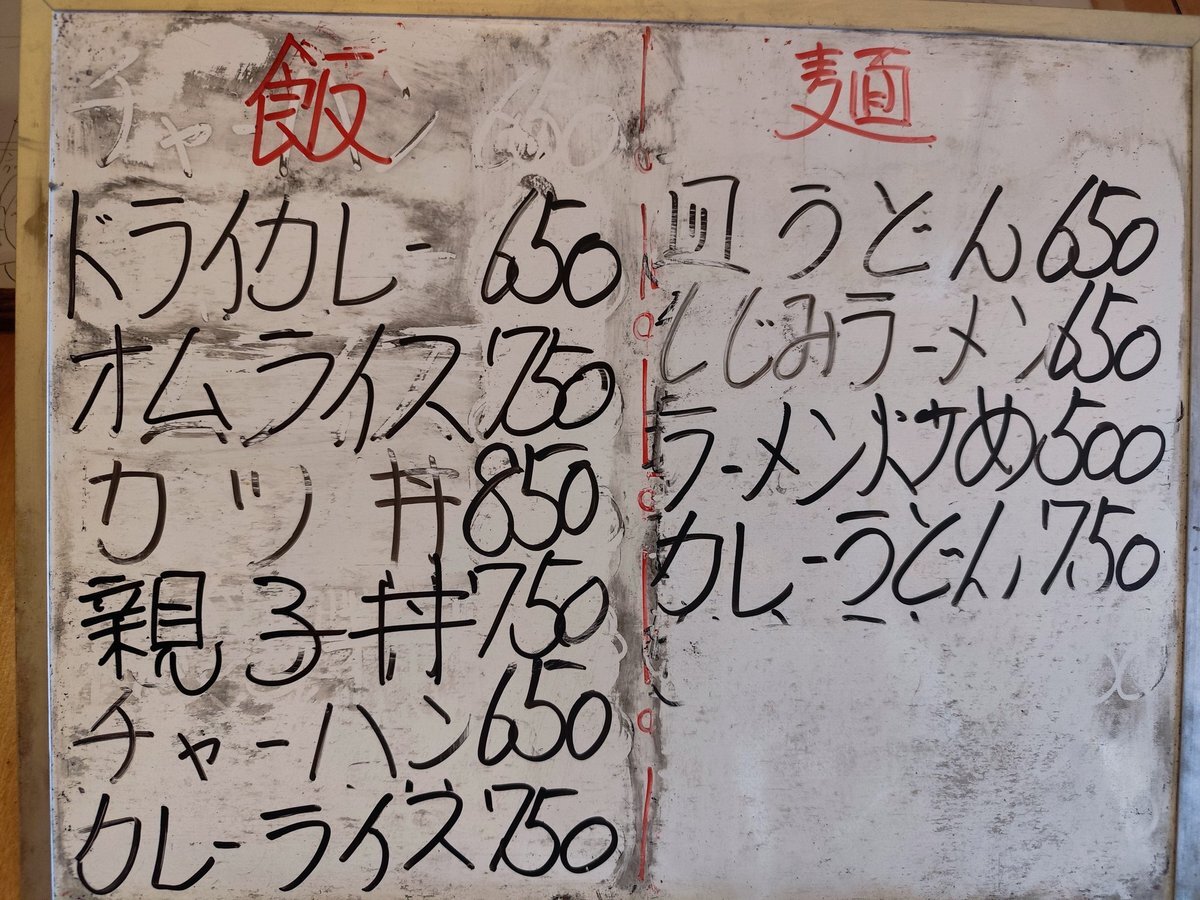 飯
ドライカレー 650
オムライス 750
カツ丼 850
親子丼 750
チャーハン 650
カレーライス 750
麺
皿うどん 650
しじみラーメン 650
ラーメン炒め 500
カレーうどん 750